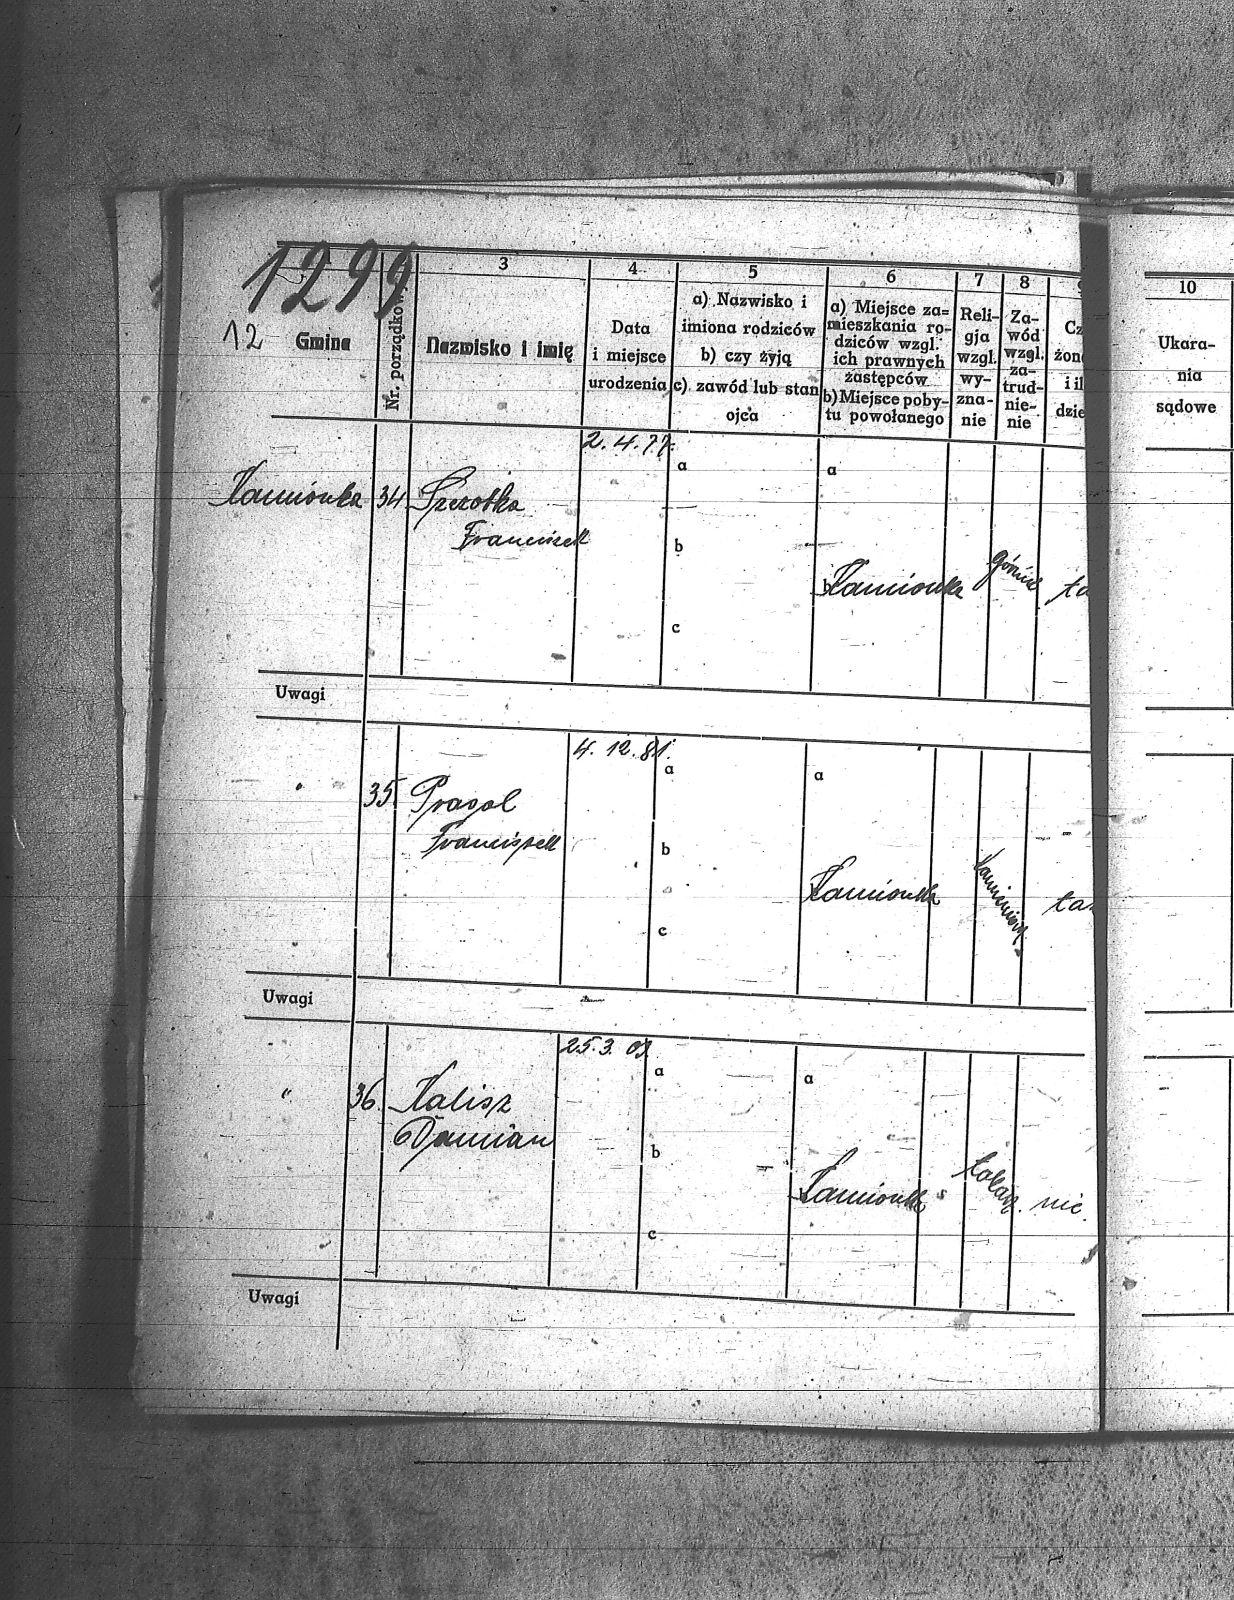 1299
12
Gmina
Nr. porządkow.
3
Nazwisko i imię
4
Data
i miejsce
urodzenia
5
a) Nazwisko i
imiona rodziców
b) czy żyją
c) zawód lub stan
ojca
6
a) Miejsce za=
mieszkania ro-
dziców wzgl.
ich prawnych
zastępców
b) Miejsce poby-
tu powołanego
7
Reli-
gja
wzgl.
wy-
zna-
nie
8
Za-
wód
wzgl.
za-
trud-
nie-
nie
10
Ukara-
nia
sądowe
Kamionka 34 Szczotka
Franciszek
2. 4. 77.
a
b
c
a
b Kamionka
górnik
Uwagi
" 35. Pragol
Franciszek
4. 12. 81.
a
b
c
a
Kamionka
Uwagi
" 36. Kalisz
Damian
25. 3. 03
a
b
c
a
Kamionka
nie.
Uwagi